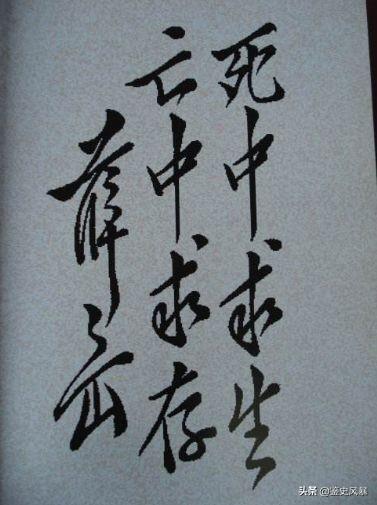 死中求生
亡中求存
薛岳
头条 @鉴史风暴